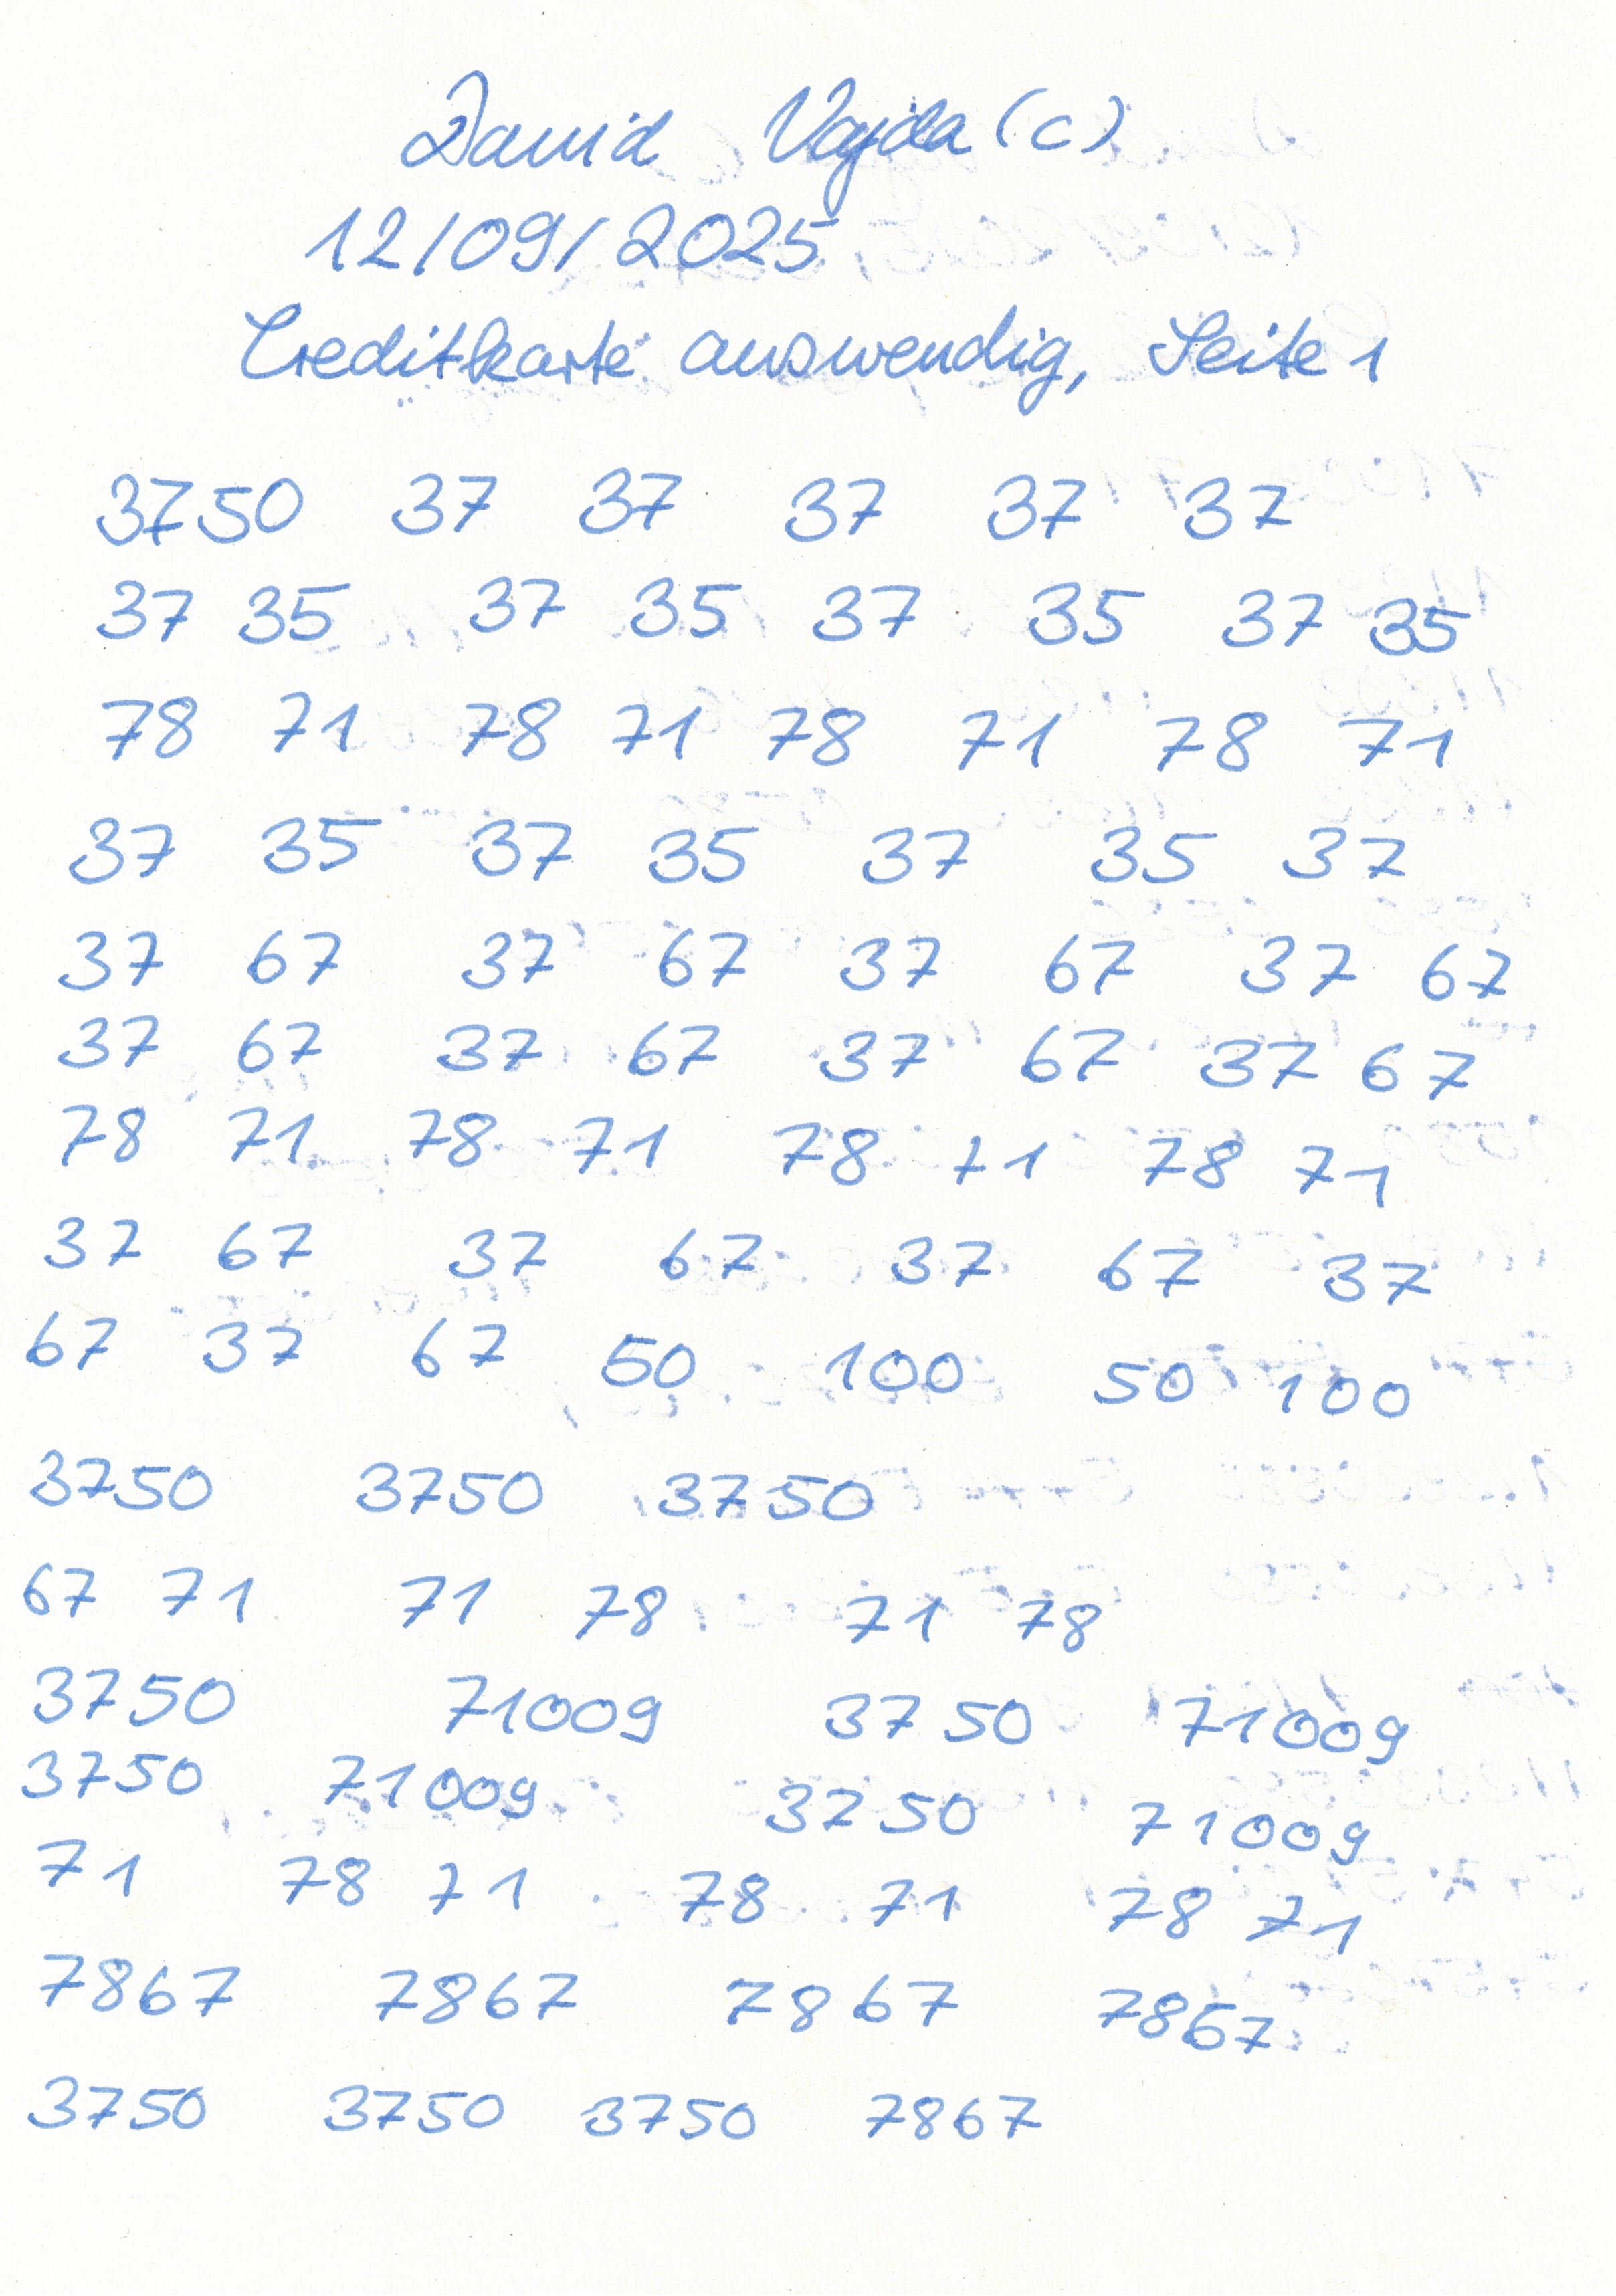 David Vajda (c)
12/09/2025
Creditkarte auswendig, Seite 1
3750 37 37 37 37 37
37 35 37 35 37 35 37 35
78 71 78 71 78 71 78 71
37 35 37 35 37 35 37
37 67 37 67 37 67 37 67
37 67 37 67 37 67 37 67
78 71 78 71 78 71 78 71
37 67 37 67 37 67 37
67 37 67 50 100 50 100
3750 3750 3750
67 71 71 78 71 78
3750 71009 3750 71009
3750 71009 3750 71009
71 78 71 78 71 78 71
7867 7867 7867 7867
3750 3750 3750 7867